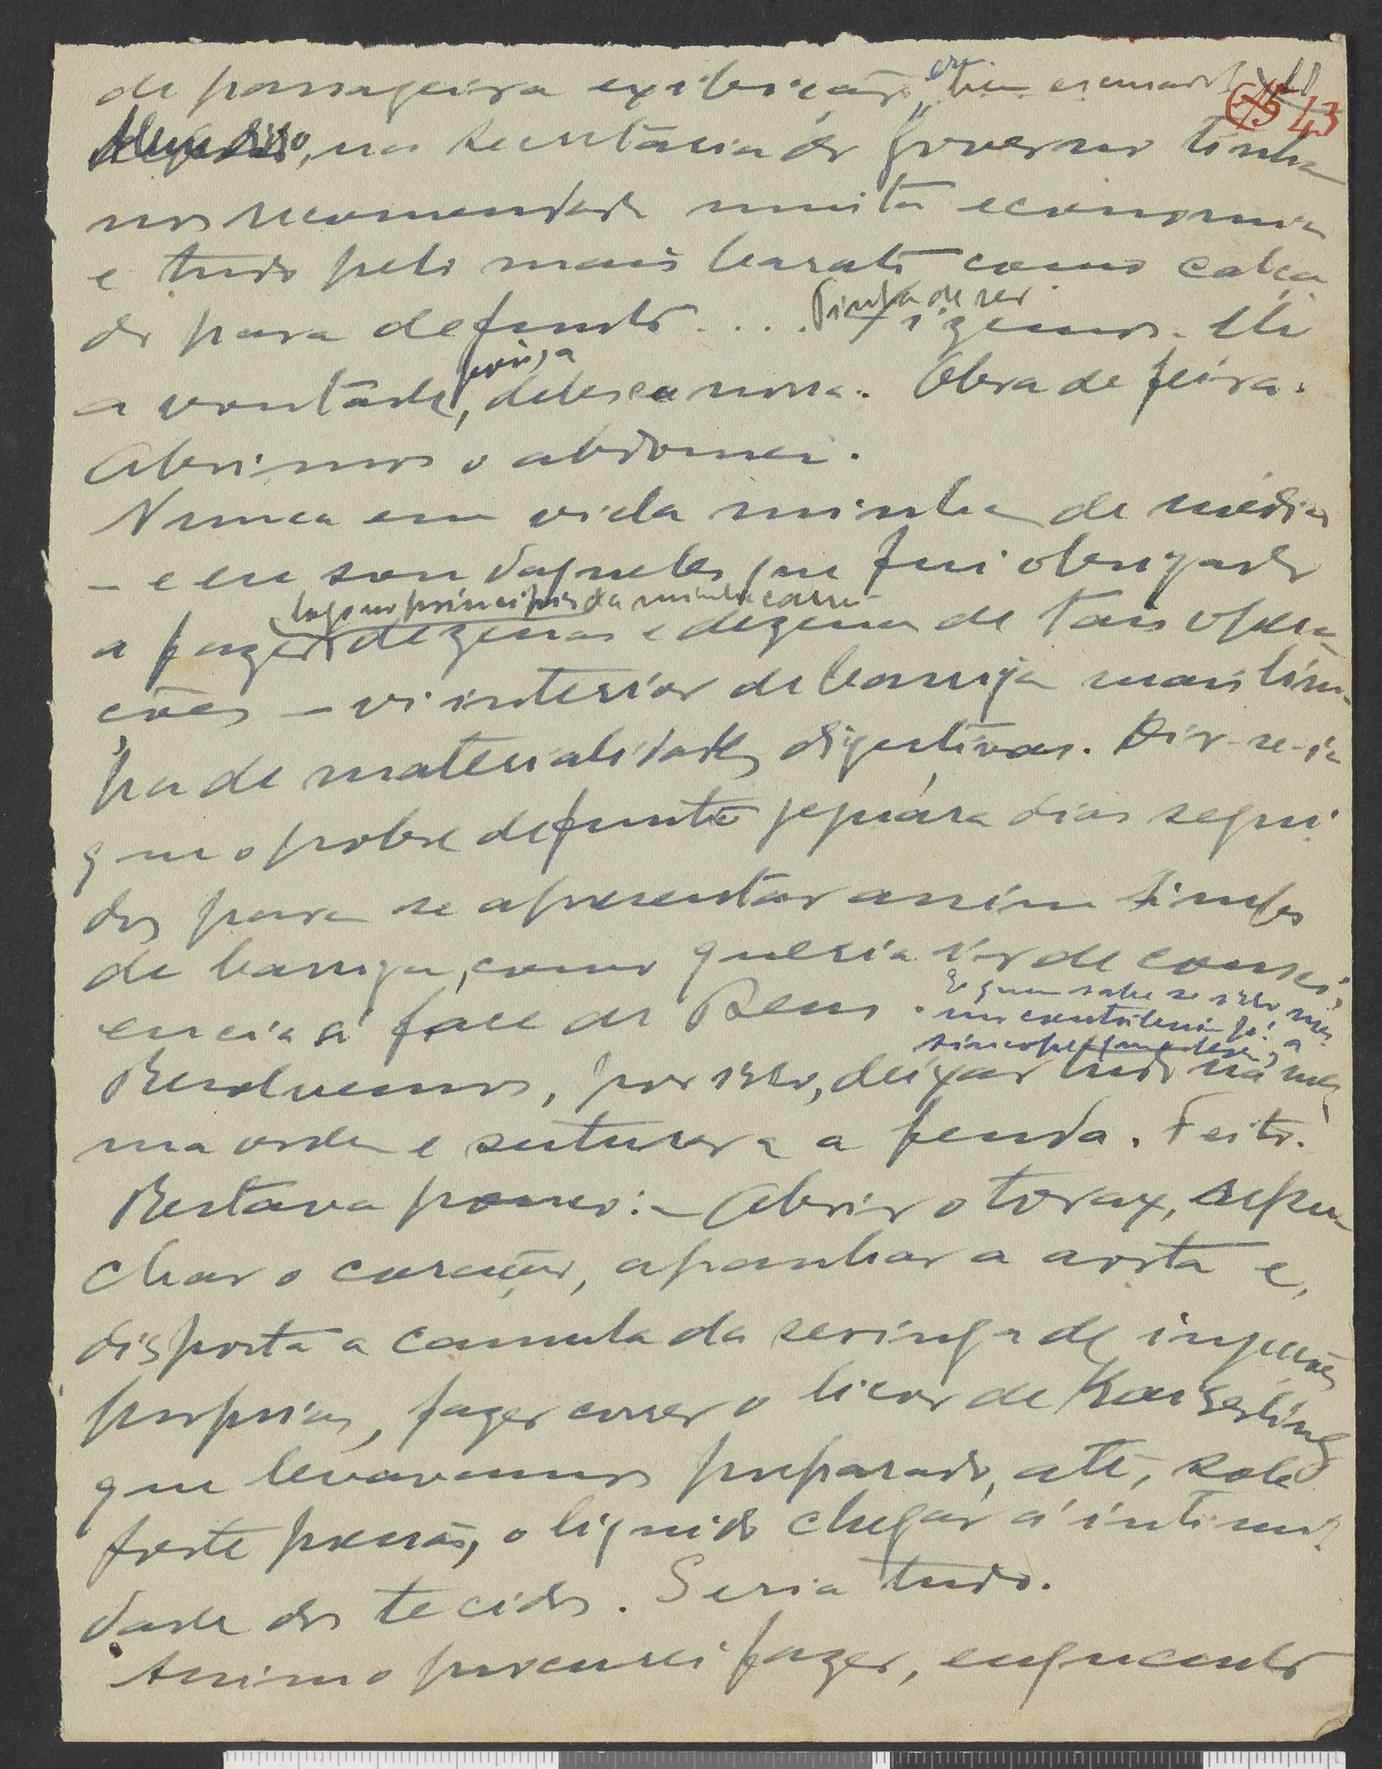 de passageira exibição, era bem escusado. 43
Alem disso, na Secretaria do Governo tinha
nos recomendado muita economia
e tudo pelo mais barato como calça
do para defunto.... Tinha de ser
a vontade força, deles e a nossa. Obra de feira.
Abrimos o abdomen.
Nunca em vida minha de médico
— e eu sou daqueles que fui obrigado
logo no principio da minha carreira
a fazer dezenas e dezenas de tais opera
ções — vi interior de barriga mais lim-
pa de materialidades digestivas. Dir-se-ia
que o pobre defunto jejuára dias segui
dos para se apresentar assim limpo
de barriga, como queria ir de consci-
encia á face de Deus.
E quem sabe se isso não
contribuiu pª a
sincope
Resolvemos, por isso, deixar tudo na mes
ma ordem e suturar a fenda. Feito.
Restava pouco: — Abrir o torax, repu
char o coração, apanhar a aorta e,
disposta a canula da seringa de injecções
proprias, fazer correr o licor de Kaiserling
que levavamos preparado, até, sob
forte pressão, o liquido chegar á intimi
dade dos tecidos. Seria tudo.
Assim o procurei fazer, enquanto